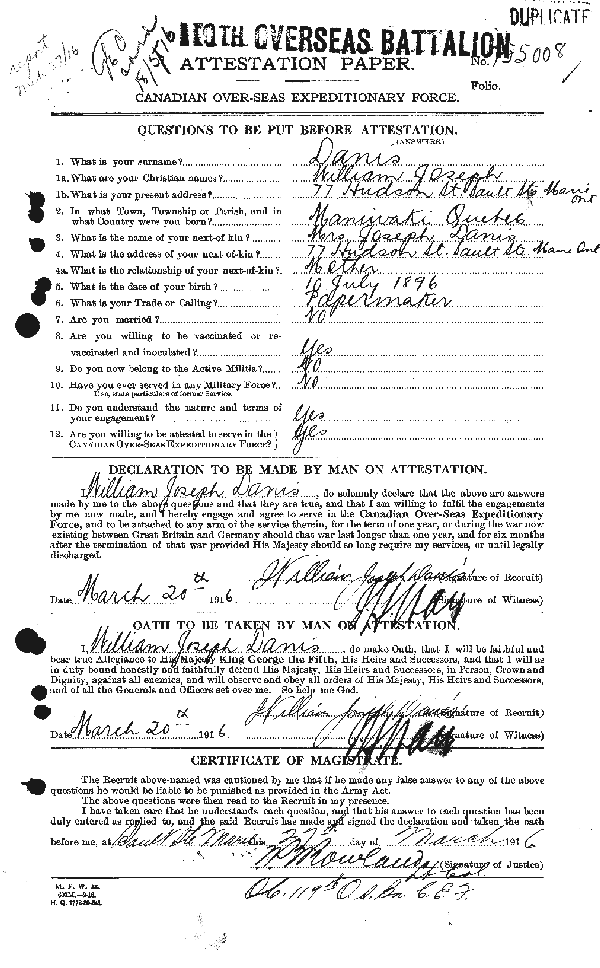 DUPLICATE
119TH OVERSEAS BATTALION
ATTESTATION PAPER.
No. 755008
Folio.
CANADIAN OVER-SEAS EXPEDITIONARY FORCE.
QUESTIONS TO BE PUT BEFORE ATTESTATION.
(ANSWERS)
1. What is your surname? Danis
1a. What are your Christian names? William Joseph
1b. What is your present address? 77 Hudson St. Sault Ste Marie Ont
2. In what Town, Township or Parish, and in
what Country were you born? Maniwaki Quebec
3. What is the name of your next-of-kin? Mrs Joseph Danis
4. What is the address of your next-of-kin? 77 Hudson St. Sault Ste Marie Ont
4a. What is the relationship of your next-of-kin? Mother
5. What is the date of your birth? 10 July 1896
6. What is your Trade or Calling? Papermaker
7. Are you married? No
8. Are you willing to be vaccinated or re-
vaccinated and inoculated? Yes
9. Do you now belong to the Active Militia? No
10. Have you ever served in any Military Force? No
If so, state particulars of former Service.
11. Do you understand the nature and terms of
your engagement? Yes
12. Are you willing to be attested to serve in the
CANADIAN OVER-SEAS EXPEDITIONARY FORCE? Yes
DECLARATION TO BE MADE BY MAN ON ATTESTATION.
I, William Joseph Danis, do solemnly declare that the above are answers
made by me to the above questions and that they are true, and that I am willing to fulfil the engagements
by me now made, and I hereby engage and agree to serve in the Canadian Over-Seas Expeditionary
Force, and to be attached to any arm of the service therein, for the term of one year, or during the war now
existing between Great Britain and Germany should that war last longer than one year, and for six months
after the termination of that war provided His Majesty should so long require my services, or until legally
discharged.
William Joseph Danis (Signature of Recruit)
Date March 20th 1916 (Signature of Witness)
OATH TO BE TAKEN BY MAN ON ATTESTATION.
I, William Joseph Danis, do make Oath, that I will be faithful and
bear true Allegiance to His Majesty King George the Fifth, His Heirs and Successors, and that I will as
in duty bound honestly and faithfully defend His Majesty, His Heirs and Successors, in Person, Crown and
Dignity, against all enemies, and will observe and obey all orders of His Majesty, His Heirs and Successors,
and of all the Generals and Officers set over me. So help me God.
William Joseph Danis (Signature of Recruit)
Date March 20th 1916 (Signature of Witness)
CERTIFICATE OF MAGISTRATE.
The Recruit above-named was cautioned by me that if he made any false answer to any of the above
questions he would be liable to be punished as provided in the Army Act.
The above questions were then read to the Recruit in my presence.
I have taken care that he understands each question, and that his answer to each question has been
duly entered as replied to, and the said Recruit has made and signed the declaration and taken the oath
before me, at Sault Ste Marie this day of March 1916
(Signature of Justice)
Lt Col
O.C. 119th O.S. Bn C.E.F.
M. F. W. 23.